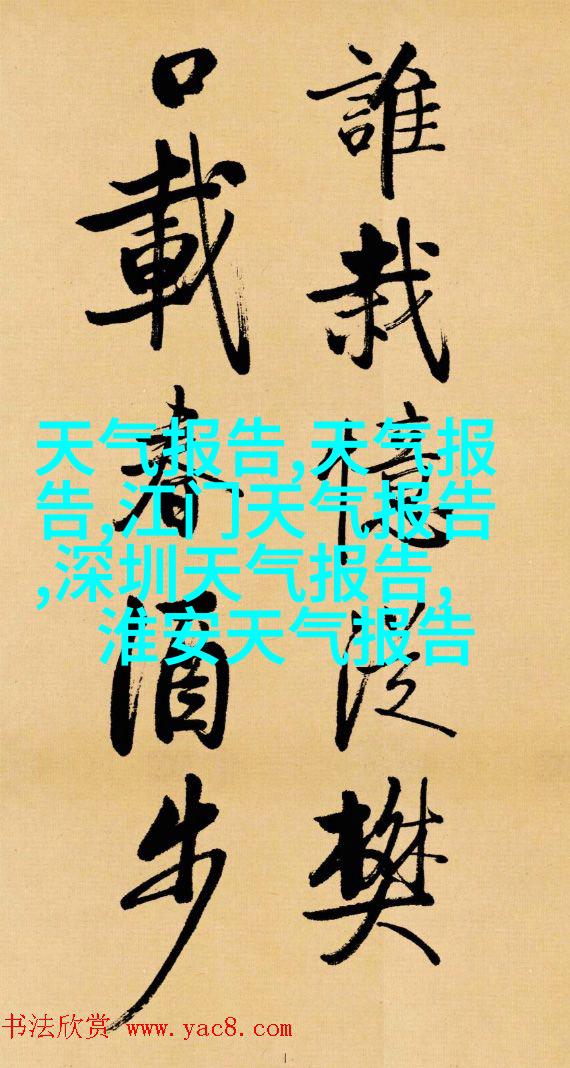 誰栽憶從樊
口載春酒步
天气报告,天气报
告,江门天气报告
,深圳天气报告,
淮安天气报告
书法欣赏 www.yac8.com